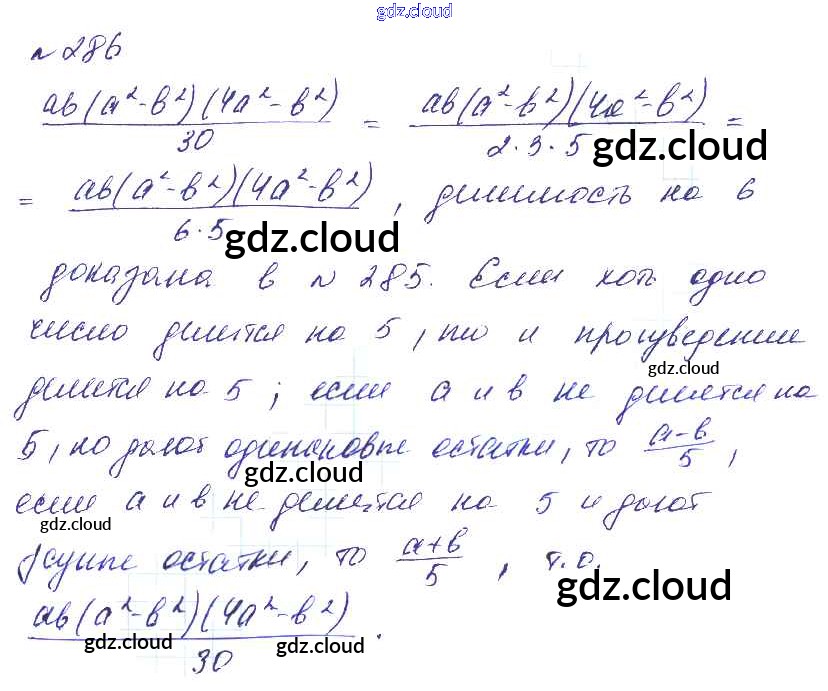 gdz.cloud
№ 286
ab(a²-b²)(4a²-b²)/30 = ab(a²-b²)(4a²-b²)/2·3·5 =
gdz.cloud
= ab(a²-b²)(4a²-b²)/6·5, делимость на 6
gdz.cloud
доказана в № 285. Если хоть одно
число делится на 5, то и произведение
gdz.cloud
делится на 5; если a и b не делятся на
5, но дают одинаковые остатки, то a-b/5,
gdz.cloud
если a и b не делится на 5 и дают
gdz.cloud
остатки, то a+b/5, т.о.
gdz.cloud
ab(a²-b²)(4a²-b²)/30.
gdz.cloud
gdz.cloud